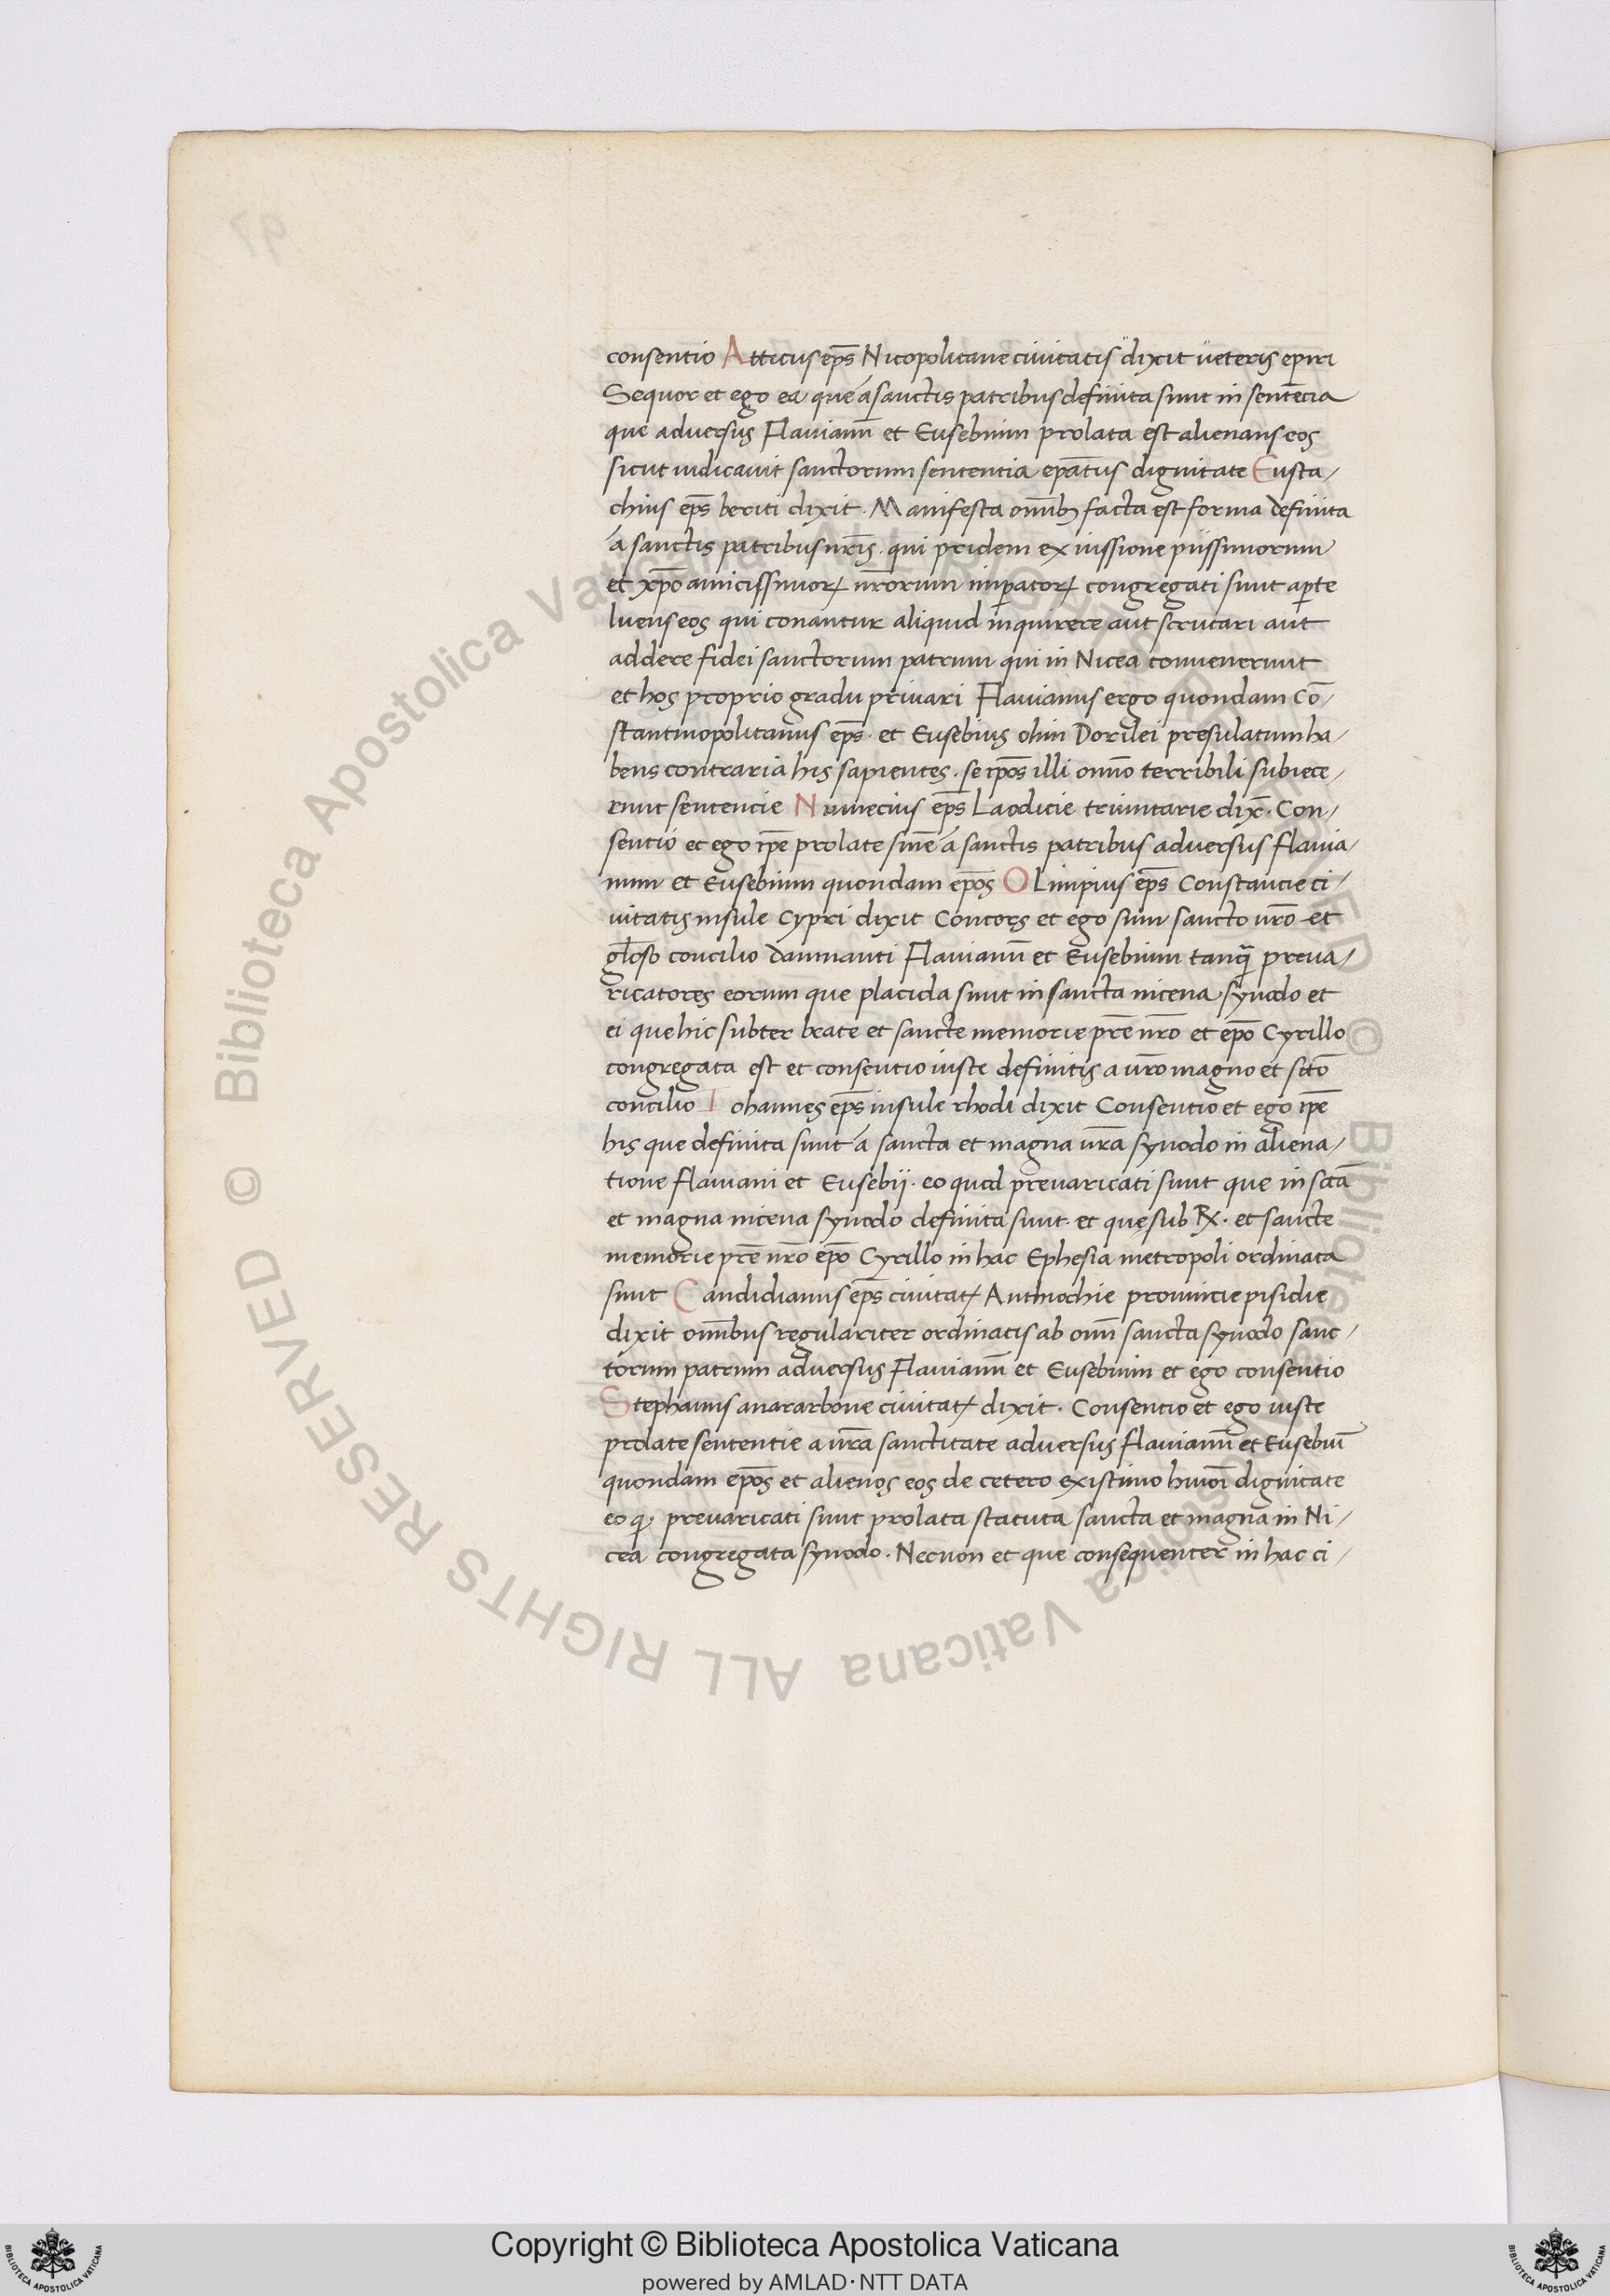 consentio Atticus ep̄s Nicopolitane civitatis "dixit "veteris epiri
Sequor et ego ea que á sanctis patribus definita sunt in sentētcia
que adversus Flavianū et Eusebium prolata est alienans eos
sicut iudicavit sanctorum sententia ep̄atus dignitate Eusta/
chius ep̄s beriti dixit. Manifesta om̄ibꝫ facta est forma definita
á sanctis patribus nr̄is. qui pridem ex iussione piissimorum
et xp̄o amicissimoꝝ nr̄orum imꝑatoꝝ congregati sunt aꝑte
luens eos qui conantur aliquid inquirere aut scrutari aut
addere fidei sanctorum patrum qui in Nicea convenerunt
et hos proprio gradu privari Flavianus ergo quondam Cō/
stantinopolitanus ep̄s. et Eusebius olim Dorilei presulatum ha/
bens contraria his sapientes. se ip̄os illi omīo terribili subiece/
runt sentencie Nunecius ep̄s Laodicie trinitarie dix̄. Con/
sentio et ego ip̄e prolate sin̄e á sanctis patribus adversus flavia/
num et Eusebium quondam ep̄os OLimpius ep̄s Constancie ci/
vitatis insule Cypri dixit Concors et ego sum sancto vr̄o et
gl̄oso concilio damnanti Flavianū et Eusebium tanq̄ preva/
ricatores eorum que placida sunt in sancta nicena synodo et
ei que hic subter beate et sancte memorie pr̄e nr̄o et ep̄o Cyrillo
congregata est et consentio iuste definitis a vr̄o magno et sc̄to
concilio Iohannes ep̄s insule rhodi dixit Consentio et ego ip̄e
his que definita sunt á sancta et magna vr̄a synodo in aliena/
tione flaviani et Eusebii. eo quod prevaricati sunt que in sc̄ta
et magna nicena synodo definita sunt. et que sub ℞. et sancte
memorie pr̄e nr̄o ep̄o Cyrillo in hac Ephesia metropoli ordinata
sunt Candidianus ep̄s civitatꝭ Antiochie provincie pisidie
dixit omībus regulariter ordinatis ab omī sancta synodo sanc/
torum patrum adversus Flavianū et Eusebium et ego consentio
Stephanus anararbone civitatꝭ dixit. Consentio et ego iuste
prolate sententie a vr̄a sanctitate adversus flavianū et Eusebiū
quondam ep̄os et alienos eos de cetero existimo hmōi dignitate
eo ꝙ prevaricati sunt prolata statuta sancta et magna in Ni/
cea congregata synodo. Necnon et que consequenter in hac ci/
Copyright © Biblioteca Apostolica Vaticana
powered by AMLAD·NTT DATA